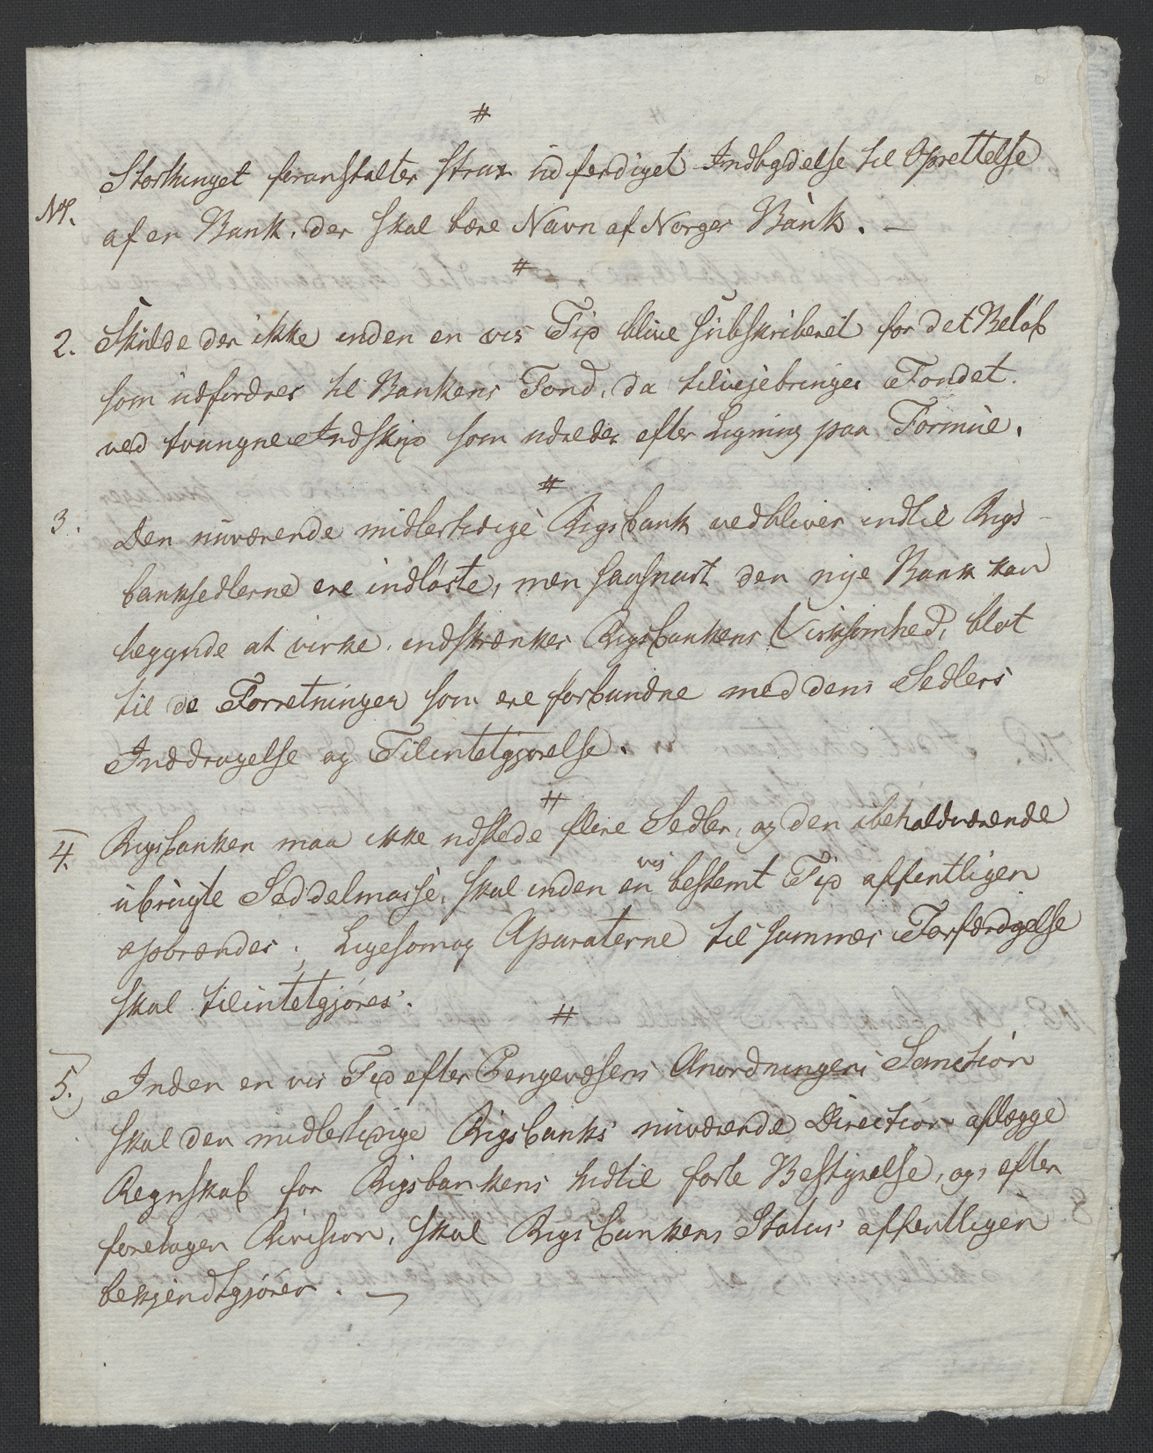 #
Storthinget foranstalter strax udferdiget Indbydelse til Oprettelse
N1. af en Bank, der skal bære Navn af Norges Bank. —
#
2. Skulde der ikke inden en vis Tid blive subskriberet for det Beløb
som udfordres til Bankens Fond, da tilvejebringes Fondet
ved tvungne Indskud som udredes efter Ligning paa Formue.
#
3. Den nuværende midlertidige Rigsbank vedbliver indtil Rigs-
banksedlerne ere indløste, men saasnart den nye Bank kan
begynde at virke, indskrænkes Rigsbankens Virksomhed, blot
til de Forretninger som ere forbundne med dens Sedlers
Inddragelse og Tilintetgjørelse.
#
4. Rigsbanken maa ikke udstede flere Sedler, og den ibehaldværende
ubrugte Seddelmasse, skal inden en vis bestemt Tid offentligen
opbrændes; Ligesom og Aparaterne til sammes Forfærdigelse
skal tilintetgjøres.
#
5. Inden en vis Tid efter Pengevæsens Anordningens Sanction
skal den midlertidige Rigsbanks nuværende Direction aflægge
Regnskab for Rigsbankens hidtil førte Bestyrelse, og efter
foretagen Revision, skal Rigsbankens Status offentligen
bekjendtgjøres. —